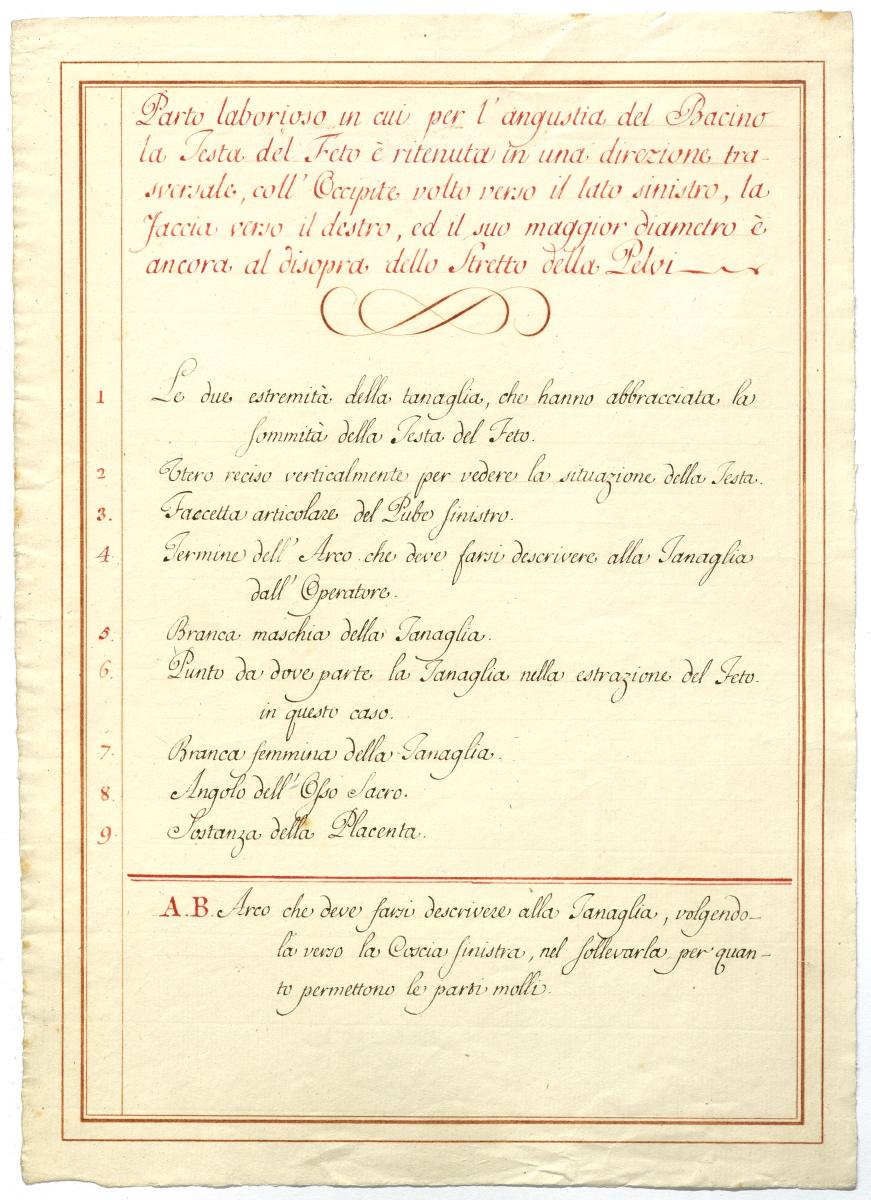 Parto laborioso in cui per l'angustia del Bacino
la Testa del Feto è ritenuta in una direzione tra-
sversale, coll'Occipite volto verso il lato sinistro, la
Faccia verso il destro, ed il suo maggior diametro è
ancora al disopra dello Stretto della Pelvi
1 Le due estremità della tanaglia, che hanno abbracciata la
sommità della Testa del Feto.
2 Utero reciso verticalmente per vedere la situazione della Testa.
3. Faccetta articolare del Pube sinistro.
4. Termine dell'Arco che deve farsi descrivere alla Tanaglia
dall'Operatore.
5. Branca maschia della Tanaglia.
6. Punto da dove parte la Tanaglia nella estrazione del Feto
in questo caso.
7. Branca femmina della Tanaglia.
8. Angolo dell'Osso Sacro.
9. Sostanza della Placenta.
A.B. Arco che deve farsi descrivere alla Tanaglia, volgendo-
la verso la Coscia sinistra, nel sollevarla per quan-
to permettono le parti molli.